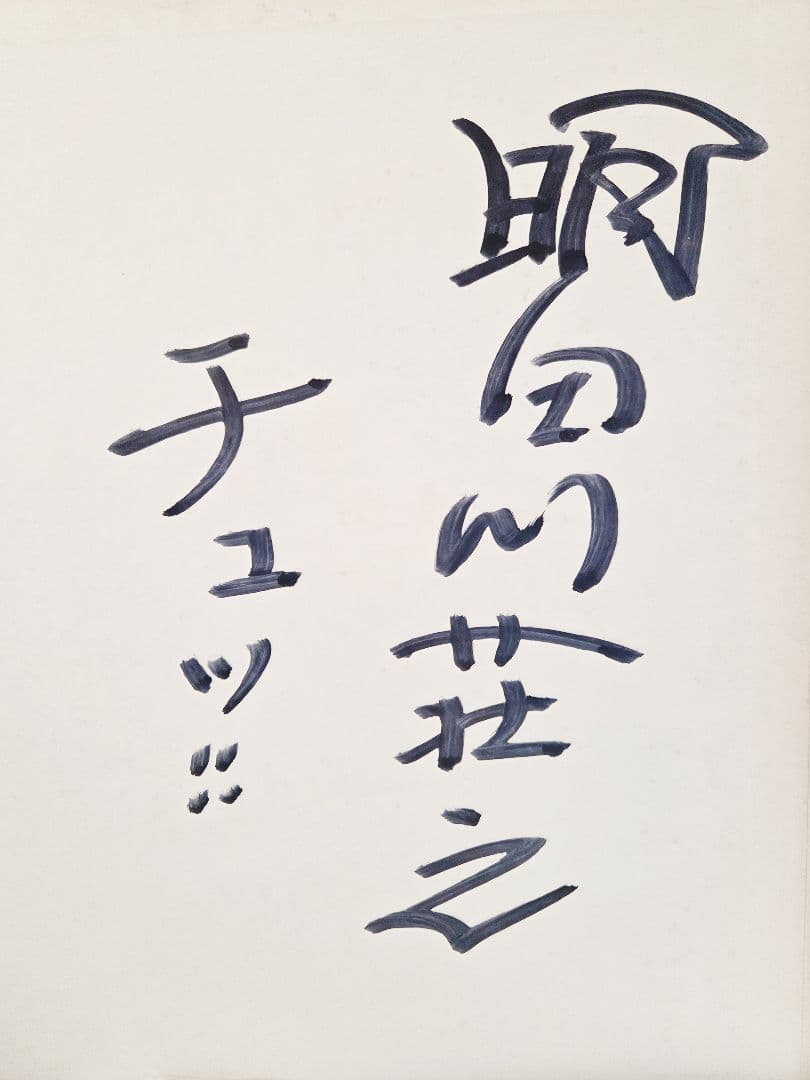 明田川荘之
チュッ!!